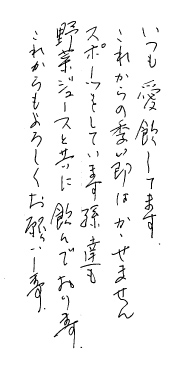 いつも愛飲してます。
これからの季節はかゝせません
スポーツをしています孫達も
野菜ジュースと共に飲んでおります。
これからもよろしくお願いします。